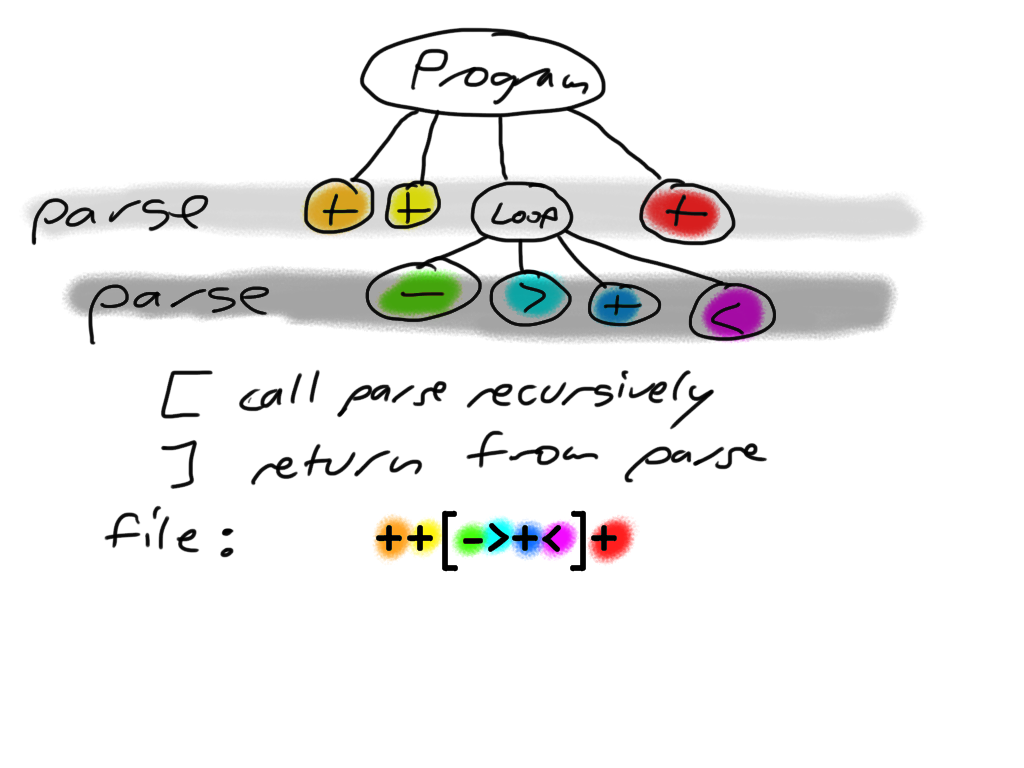 Program
parse + + Loop +
parse - > + <
[ call parse recursively
] return from parse
file: ++[->+<]+